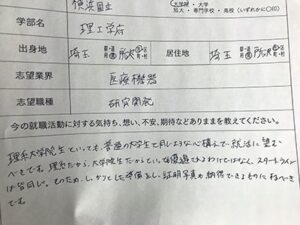 横浜国立
大学院・大学
短大・専門学校・高校（いずれかに○印）
学部名 理工学府
出身地 埼玉 都・道 府・県 所沢 区 市 居住地 埼玉 都・道 府・県 所沢 区 市
志望業界 医療機器
志望職種 研究開発
今の就職活動に対する気持ち、想い、不安、期待などありままを教えてください。
理系大学院生といっても、普通の大学生と同じような心構えで、就活に望む
べきです。理系だから、大学院生だからといって優遇されるわけではなく、スタートライン
は皆同じ。そのため、しっかりとした準備をし、証明写真も納得できるものにすべき
です。